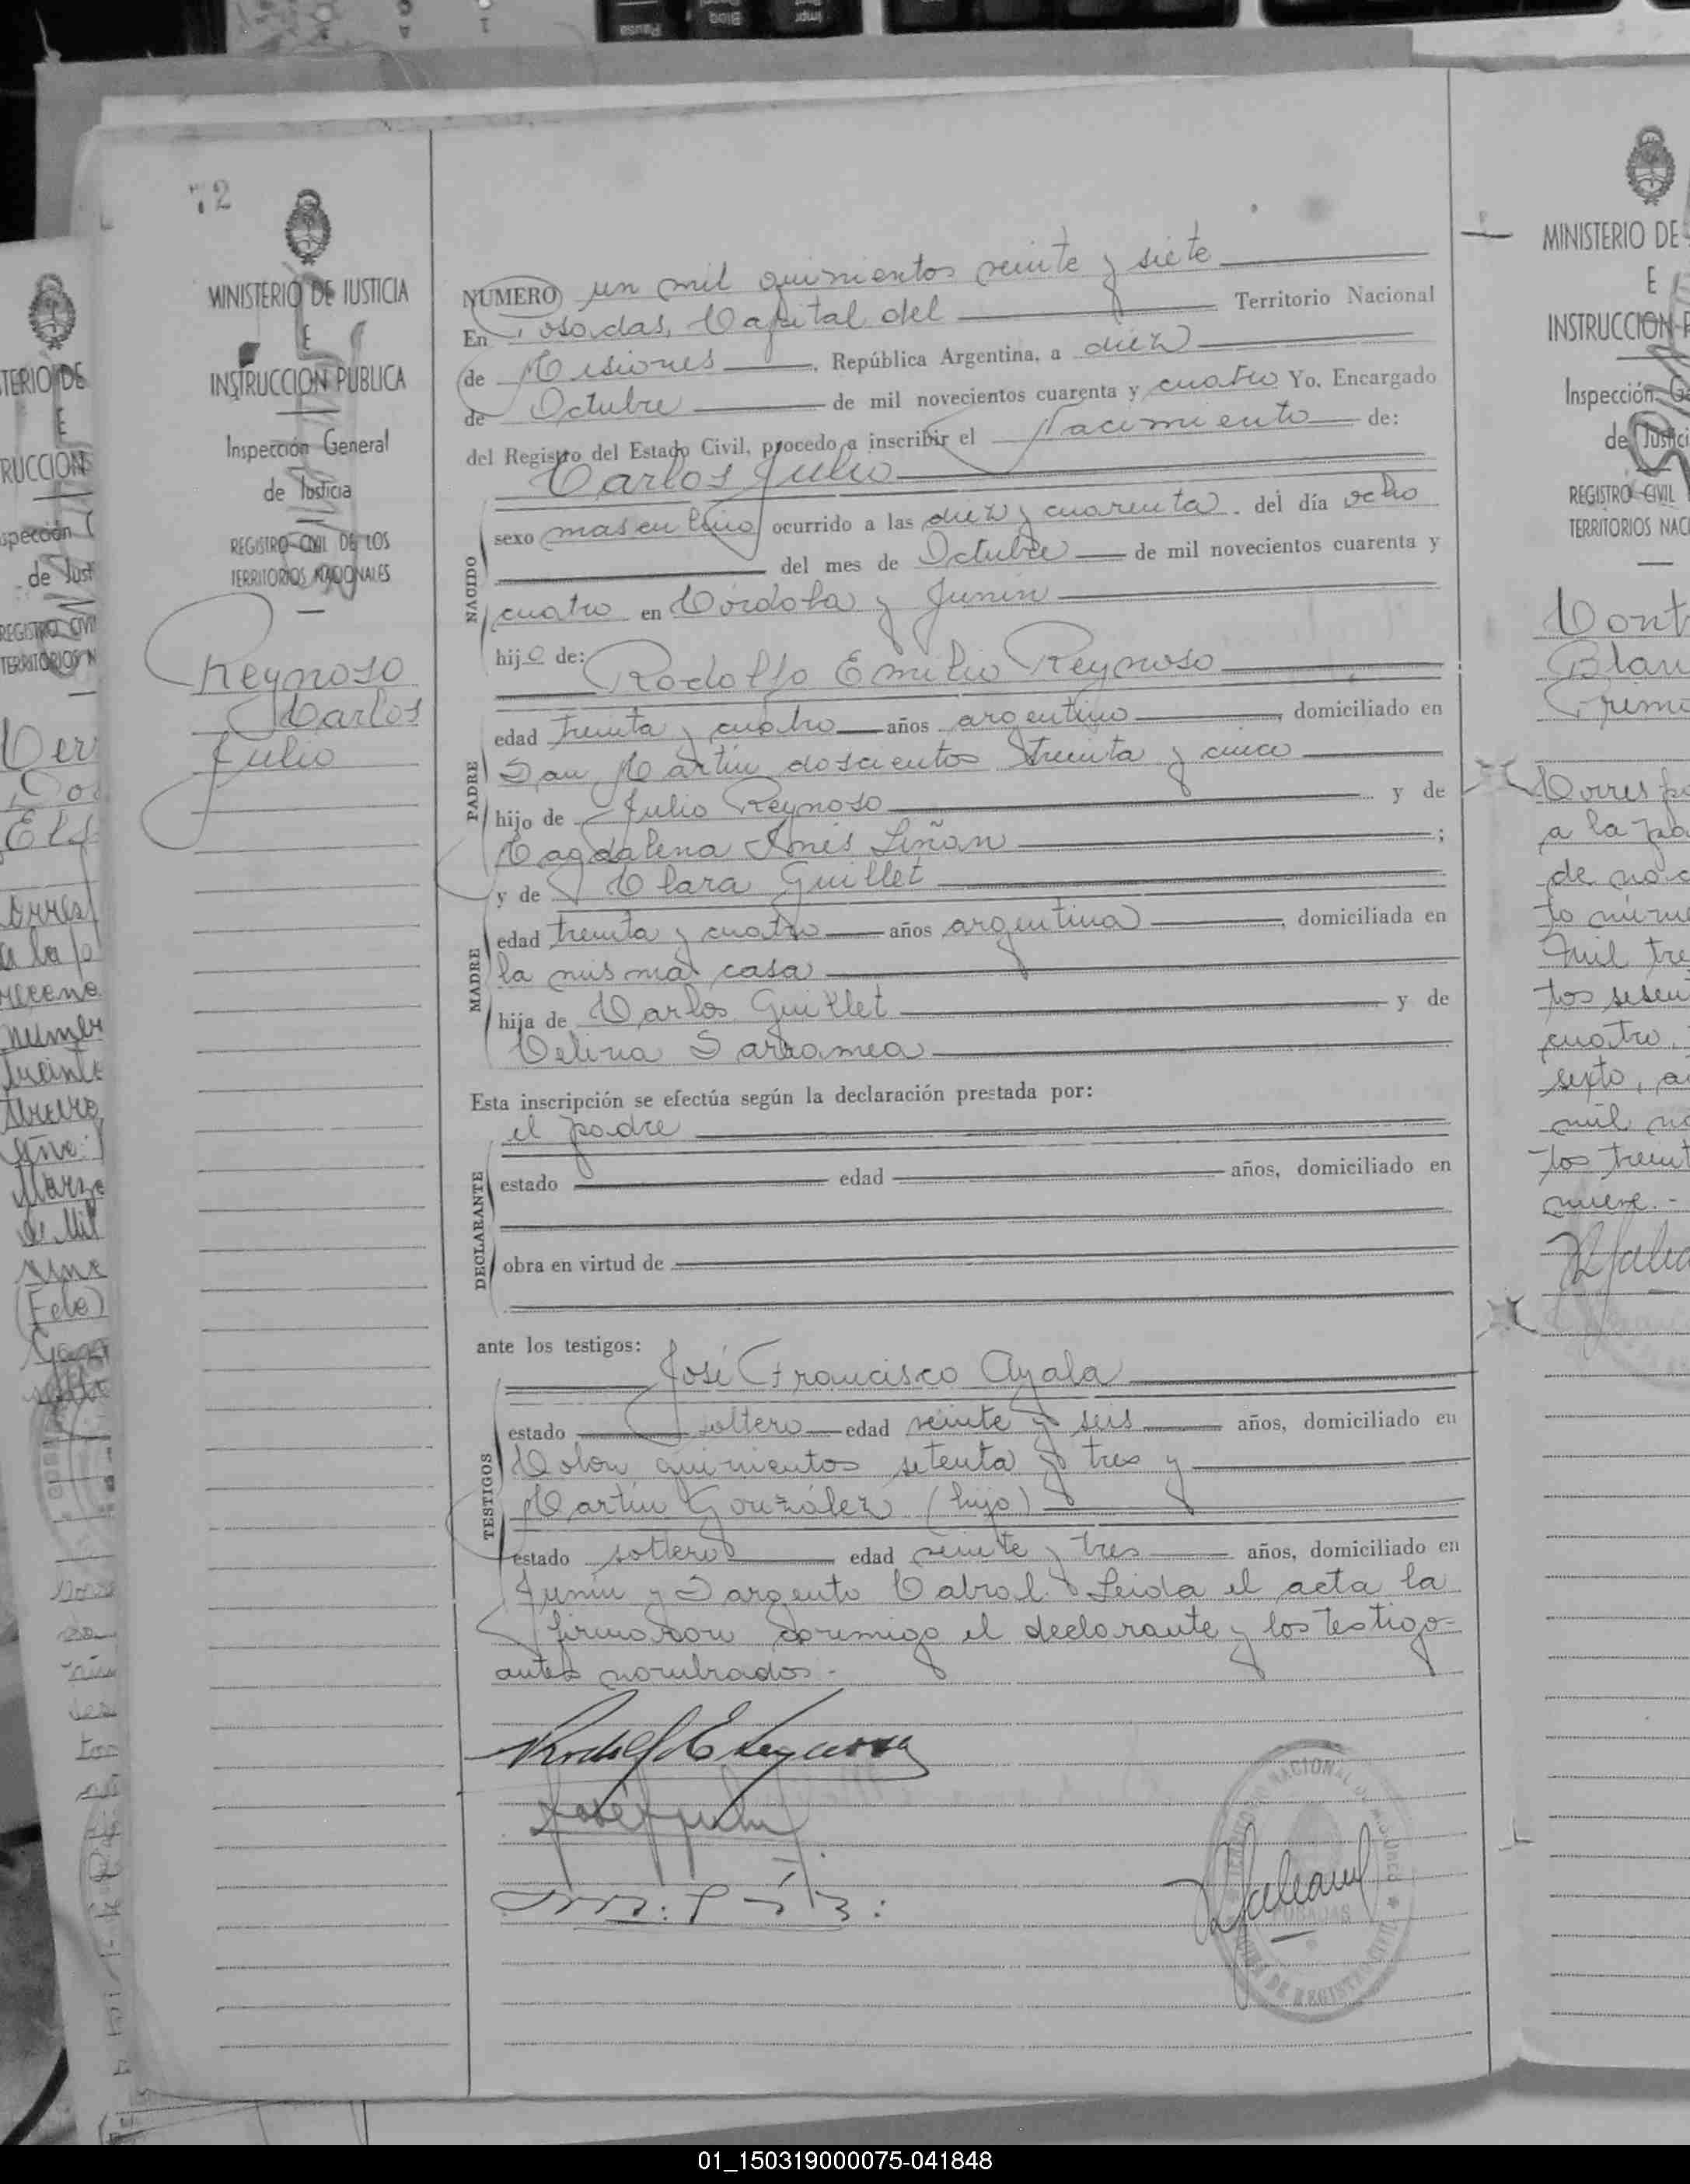 72
MINISTERIO DE JUSTICIA
E
INSTRUCCION PUBLICA
Inspección General
de Justicia
REGISTRO CIVIL DE LOS
TERRITORIOS NACIONALES
Reynoso
Carlos
Julio
NÚMERO un mil quinientos veinte y siete
En Posadas, Capital del Territorio Nacional
de Misiones, República Argentina, a diez
de Octubre de mil novecientos cuarenta y cuatro Yo, Encargado
del Registro del Estado Civil, procedo a inscribir el Nacimiento de:
Carlos Julio
NACIDO
sexo masculino ocurrido a las diez y cuarenta. del día ocho
del mes de Octubre de mil novecientos cuarenta y
cuatro en Córdoba y Junín
hijo de:
Rodolfo Emilio Reynoso
PADRE
edad treinta y cuatro años argentino, domiciliado en
San Martín doscientos treinta y cinco
hijo de Julio Reynoso y de
Magdalena Inés Liñan;
y de Clara Guillet
MADRE
edad treinta y cuatro años argentina, domiciliada en
la misma casa
hija de Carlos Guillet y de
Celina Sarramea
Esta inscripción se efectúa según la declaración prestada por:
el padre
DECLARANTE
estado edad años, domiciliado en
obra en virtud de
ante los testigos:
José Francisco Ayala
TESTIGOS
estado soltero edad veinte y seis años, domiciliado en
Colon quinientos setenta y tres y
Martín González (hijo)
estado soltero edad veinte y tres años, domiciliado en
Junín y Sargento Cabral. Leida el acta la
firmaron conmigo el declarante y los testigo-
antes nombrados.-
MINISTERIO DE
E
INSTRUCCION P
Inspección Ge
de Justici
REGISTRO CIVIL
TERRITORIOS NAC
a la
cuatro,
sexto, a
mil no
nueve.-
01_150319000075-041848